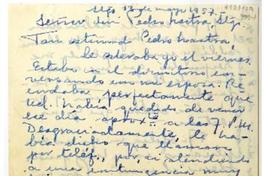 Stgo 13 de mayo 1957.-
Señor don Pedro Lastra Stgo.
Tan estimado Pedro Lastra:
Le esperaba yo el viernes.
Estaba en el dormitorio con-
versando con mi esposa. Re-
cordaba perfectamente que
Ud. había quedado de venir
ese día a las 7 P.M.
Desgraciadamente, le ha-
bía dicho que llamara
por teléf., por si
a una contingencia muy